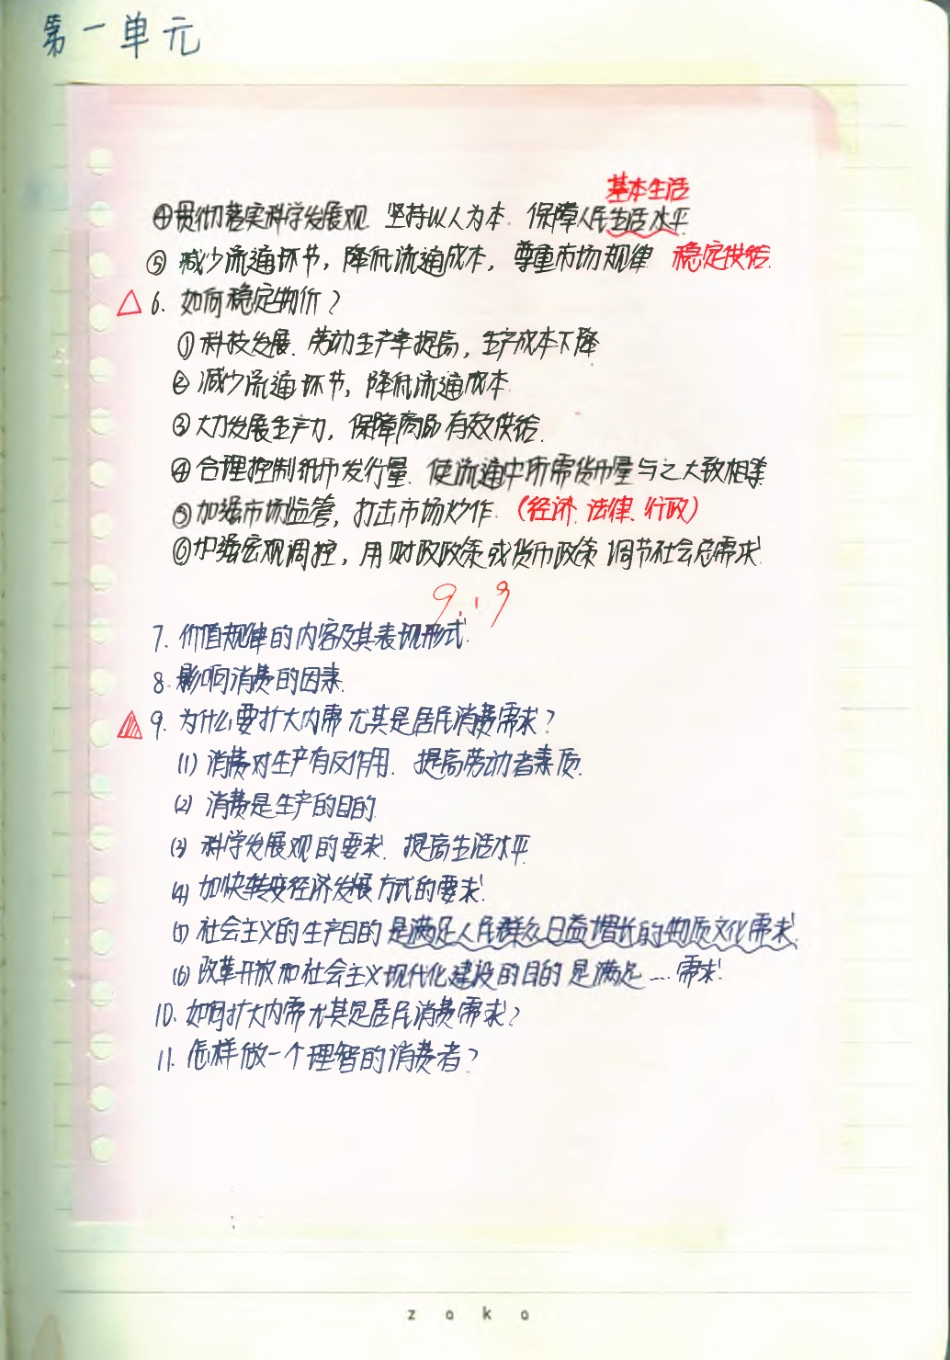 第一单元
基本生活
④贯彻落实科学发展观 坚持以人为本. 保障人民生活水平
⑤ 减少流通环节, 降低流通成本, 尊重市场规律 稳定供给.
△ 6. 如何稳定物价?
①科技发展、劳动生产率提高, 生产成本下降
② 减少流通环节, 降低流通成本.
③大力发展生产力, 保障商品有效供给.
④合理控制纸币发行量. 使流通中所需货币量与之大致相等
⑤加强市场监管, 打击市场炒作.(经济、法律、行政)
⑥加强宏观调控, 用财政政策或货币政策调节社会总需求.
9.19
7. 价值规律的内容及其表现形式.
8. 影响消费的因素.
△ 9. 为什么要扩大内需尤其是居民消费需求?
(1) 消费对生产有反作用. 提高劳动者素质.
(2) 消费是生产的目的
(3) 科学发展观的要求. 提高生活水平
(4) 加快转变经济发展方式的要求.
(5) 社会主义的生产目的是满足人民群众日益增长的物质文化需求.
(6) 改革开放和社会主义现代化建设的目的是满足....需求.
10. 如何扩大内需尤其是居民消费需求?
11. 怎样做一个理智的消费者?
zaka